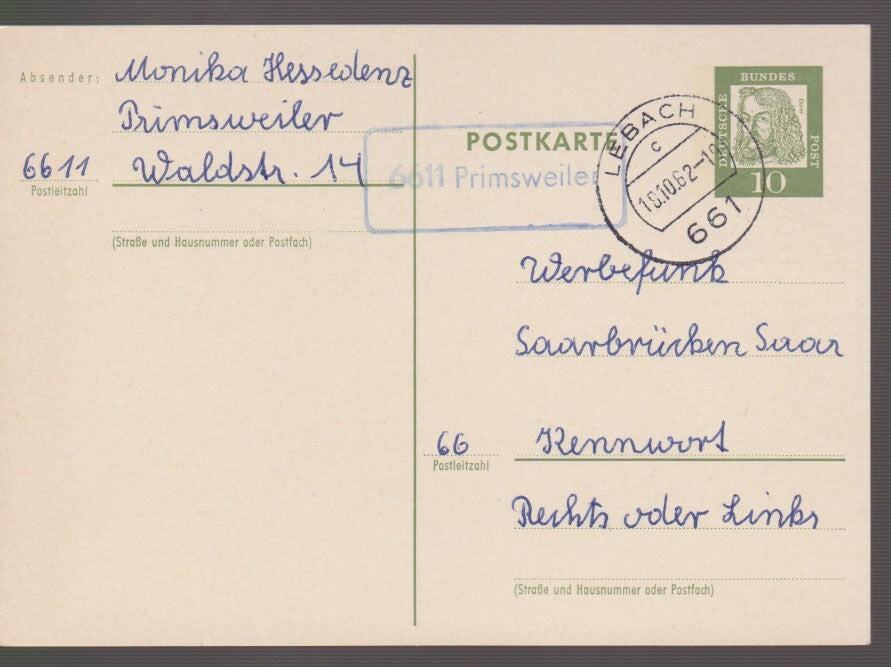 Absender: Monika Hessedenz
Primsweiler
6611 Waldstr. 14
Postleitzahl
(Straße und Hausnummer oder Postfach)
POSTKARTE
6611 Primsweiler
LEBACH
c
18.10.62-18
661
DEUTSCHE
BUNDES
POST
Dürer
10
Werbefunk
Saarbrücken Saar
66 Kennwort
Postleitzahl
Rechts oder Links
(Straße und Hausnummer oder Postfach)